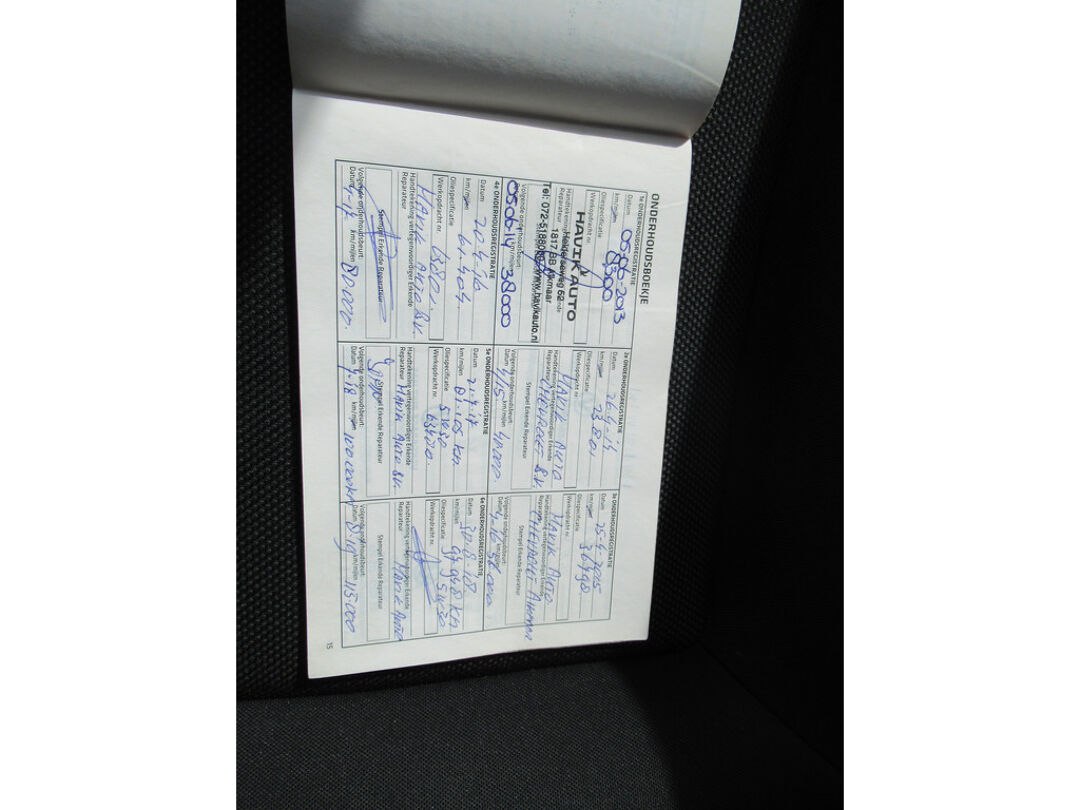 ONDERHOUDSBOEKJE
1e ONDERHOUDSREGISTRATIE
Datum 05-06-2013
km/mijlen 8.500
Oliespecificatie
Werkopdracht nr.
HAVIK AUTO
Helderseweg 62
Handtekening
Reparateur 1817 BB Alkmaar
Tel: 072-5188080 www.havikauto.nl
Volgende onderhoudsbeurt
05-06-14 38000
2e ONDERHOUDSREGISTRATIE
Datum 26-4-14
km/mijlen 23.801
Oliespecificatie
Werkopdracht nr.
HAVIK AUTO
Handtekening vertegenwoordiger Erkende
Reparateur CHEVROLET B.V.
Stempel Erkende Reparateur
Volgende onderhoudsbeurt:
Datum 4/15 km/mijlen 40000
3e ONDERHOUDSREGISTRATIE
Datum 25-4-2015
km/mijlen
Oliespecificatie
Werkopdracht nr.
HAVIK AUTO
Handtekening vertegenwoordiger Erkende
Reparateur CHEVROLET
Stempel Erkende Reparateur
Volgende onderhoudsbeurt:
Datum 4-16 km/mijlen
4e ONDERHOUDSREGISTRATIE
Datum 20-4-16
km/mijlen 61.404.
Oliespecificatie
Werkopdracht nr.
HAVIK AUTO B.V.
Handtekening vertegenwoordiger Erkende
Reparateur
Stempel Erkende Reparateur
Volgende onderhoudsbeurt:
Datum 4-17 km/mijlen 80000.
5e ONDERHOUDSREGISTRATIE
Datum 21-4-17
km/mijlen 81.105 km
Oliespecificatie 5W30
Werkopdracht nr.
Handtekening vertegenwoordiger Erkende
Reparateur HAVIK AUTO B.V.
Stempel Erkende Reparateur
Volgende onderhoudsbeurt:
Datum 4-18 km/mijlen 100 000km
6e ONDERHOUDSREGISTRATIE
Datum 30-8-18
km/mijlen 97.948 km
Oliespecificatie 5W30
Werkopdracht nr.
Handtekening vertegenwoordiger Erkende
Reparateur HAVIK AUTO
Stempel Erkende Reparateur
Volgende onderhoudsbeurt:
Datum 8-19 km/mijlen 115.000
15